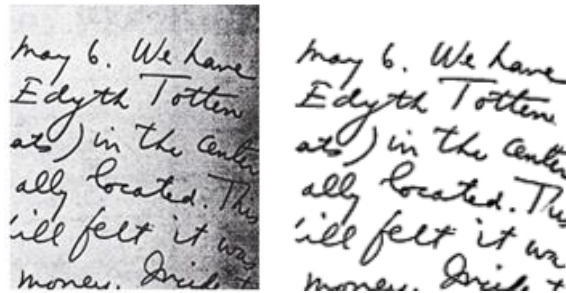 may 6. We have
Edyth Totten
ats) in the center
ally located. This
ill felt it was
money. Incide t
may 6. We have
Edyth Totten
ats) in the center
ally located. This
ill felt it wa
money. Incide t